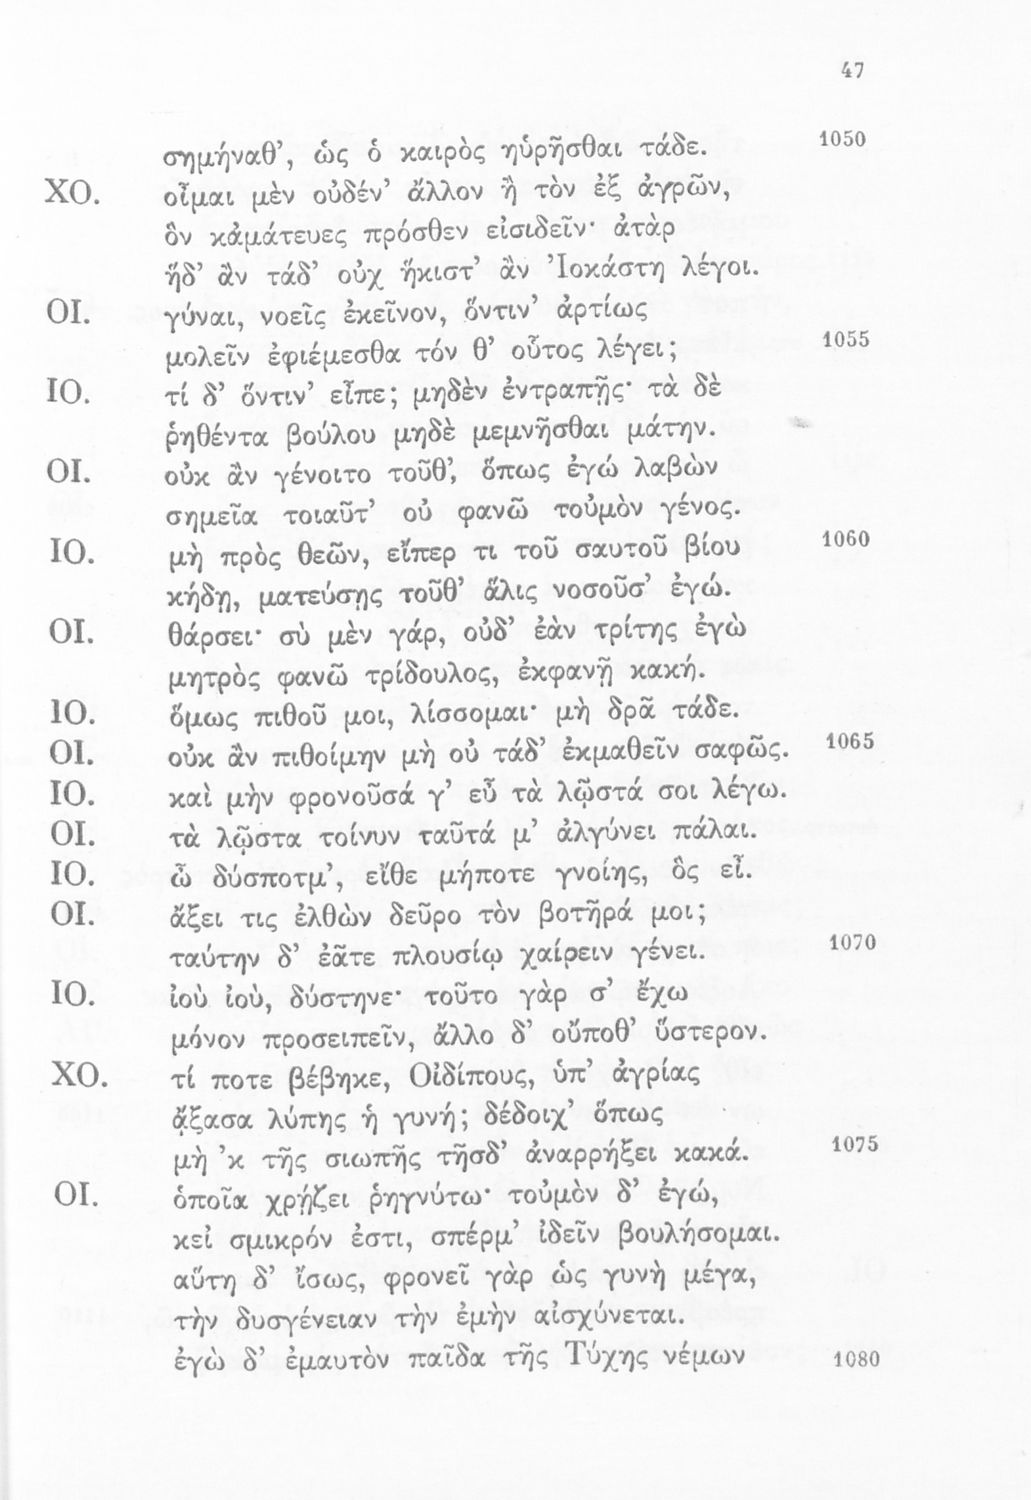 47
σημήναθ’, ὡς ὁ καιρὸς ηὑρῆσθαι τάδε. 1050
ΧΟ. οἶμαι μὲν οὐδέν’ ἄλλον ἢ τὸν ἐξ ἀγρῶν,
ὃν κἀμάτευες πρόσθεν εἰσιδεῖν· ἀτὰρ
ἥδ’ ἂν τάδ’ οὐχ ἥκιστ’ ἂν Ἰοκάστη λέγοι.
ΟΙ. γύναι, νοεῖς ἐκεῖνον, ὅντιν’ ἀρτίως
μολεῖν ἐφιέμεσθα τόν θ’ οὗτος λέγει; 1055
ΙΟ. τί δ’ ὅντιν’ εἶπε; μηδὲν ἐντραπῇς· τὰ δὲ
ῥηθέντα βούλου μηδὲ μεμνῆσθαι μάτην.
ΟΙ. οὐκ ἂν γένοιτο τοῦθ’, ὅπως ἐγώ λαβὼν
σημεῖα τοιαῦτ’ οὐ φανῶ τοὐμὸν γένος.
ΙΟ. μὴ πρὸς θεῶν, εἴπερ τι τοῦ σαυτοῦ βίου 1060
κήδῃ, ματεύσῃς τοῦθ’ ἅλις νοσοῦσ’ ἐγώ.
ΟΙ. θάρσει· σὺ μὲν γάρ, οὐδ’ ἐὰν τρίτης ἐγὼ
μητρὸς φανῶ τρίδουλος, ἐκφανῇ κακή.
ΙΟ. ὅμως πιθοῦ μοι, λίσσομαι· μὴ δρᾶ τάδε.
ΟΙ. οὐκ ἂν πιθοίμην μὴ οὐ τάδ’ ἐκμαθεῖν σαφῶς. 1065
ΙΟ. καὶ μὴν φρονοῦσά γ’ εὖ τὰ λῷστά σοι λέγω.
ΟΙ. τὰ λῷστα τοίνυν ταῦτά μ’ ἀλγύνει πάλαι.
ΙΟ. ὦ δύσποτμ’, εἴθε μήποτε γνοίης, ὃς εἶ.
ΟΙ. ἄξει τις ἐλθὼν δεῦρο τὸν βοτῆρά μοι;
ταύτην δ’ ἐᾶτε πλουσίῳ χαίρειν γένει. 1070
ΙΟ. ἰοὺ ἰού, δύστηνε· τοῦτο γὰρ σ’ ἔχω
μόνον προσειπεῖν, ἄλλο δ’ οὔποθ’ ὕστερον.
ΧΟ. τί ποτε βέβηκε, Οἰδίπους, ὑπ’ ἀγρίας
ᾄξασα λύπης ἡ γυνή; δέδοιχ’ ὅπως
μὴ ’κ τῆς σιωπῆς τῆσδ’ ἀναρρήξει κακά. 1075
ΟΙ. ὁποῖα χρῄζει ῥηγνύτω· τοὐμὸν δ’ ἐγώ,
κεἰ σμικρόν ἐστι, σπέρμ’ ἰδεῖν βουλήσομαι.
αὕτη δ’ ἴσως, φρονεῖ γὰρ ὡς γυνὴ μέγα,
τὴν δυσγένειαν τὴν ἐμὴν αἰσχύνεται.
ἐγὼ δ’ ἐμαυτὸν παῖδα τῆς Τύχης νέμων 1080